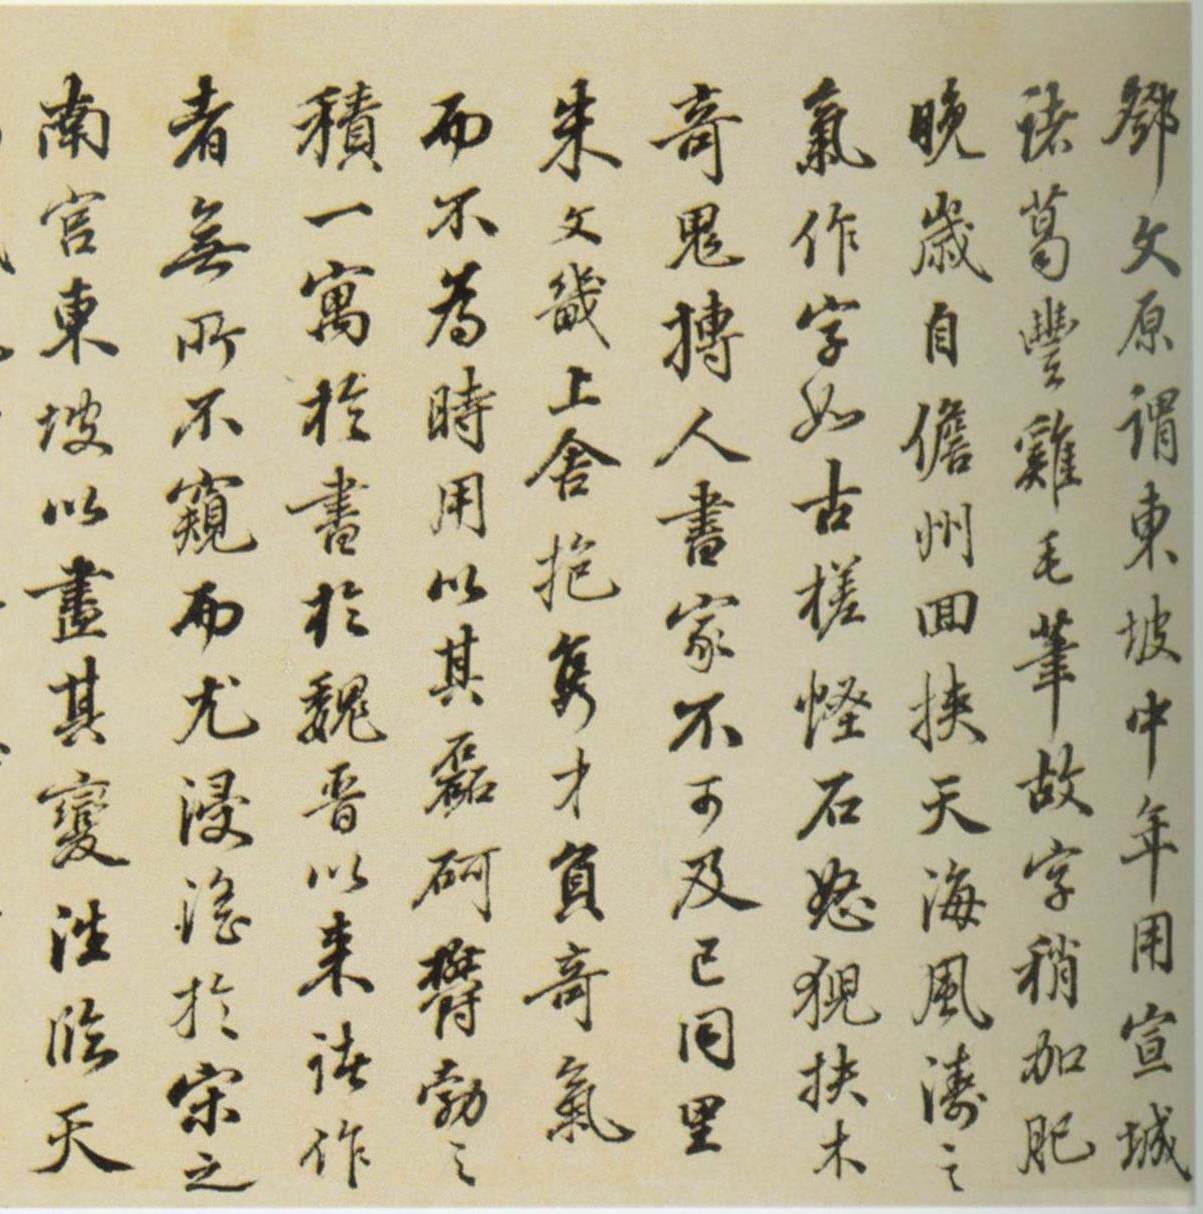 鄧文原謂東坡中年用宣城
諸葛豐雞毛筆故字稍加肥
晚歲自儋州回挾天海風濤之
氣作字如古槎怪石怒猊扶木
奇鬼搏人書家不可及已同里
朱文畿上舍抱雋才負奇氣
而不為時用以其磊砢鬱勃之
積一寓於書於魏晉以來諸作
者無所不窺而尤浸淫於宋之
南宮東坡以盡其變法臨天